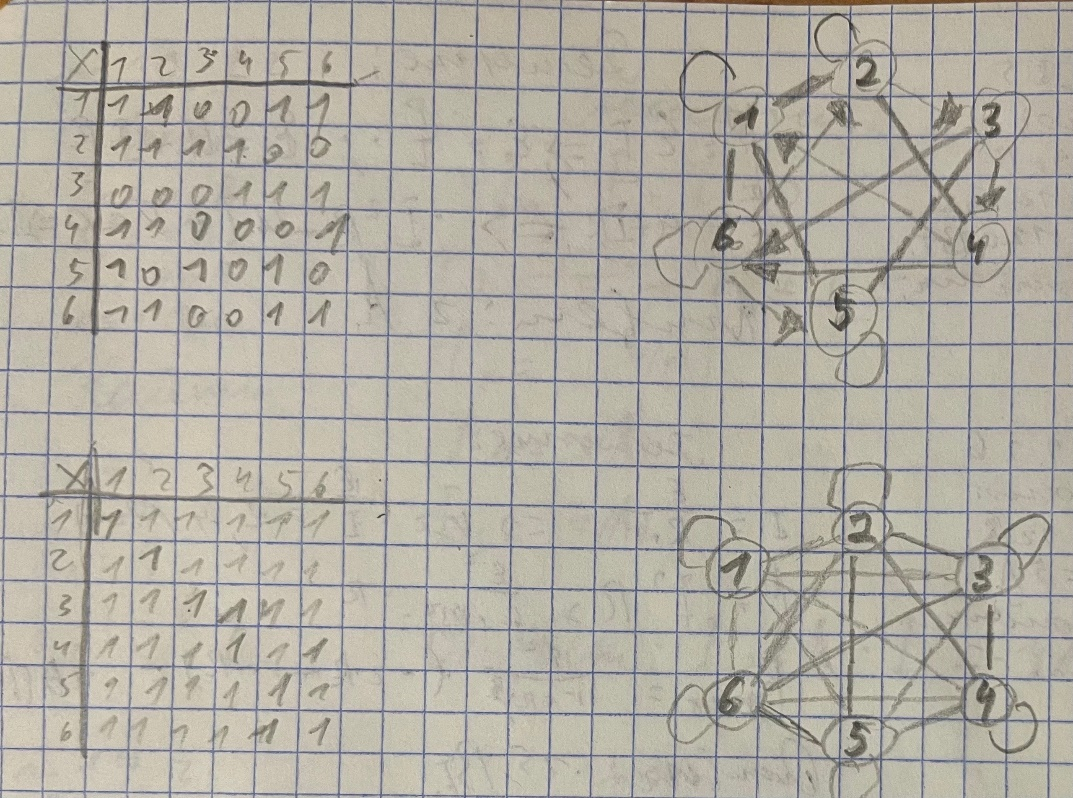 X 1 2 3 4 5 6
1 1 1 0 0 1 1
2 1 1 1 1 0 0
3 0 0 0 1 1 1
4 1 1 0 0 0 1
5 1 0 1 0 1 0
6 1 1 0 0 1 1
2
1
3
6
4
5
X 1 2 3 4 5 6
1 1 1 1 1 1 1
2 1 1 1 1 1 1
3 1 1 1 1 1 1
4 1 1 1 1 1 1
5 1 1 1 1 1 1
6 1 1 1 1 1 1
2
1
3
6
4
5